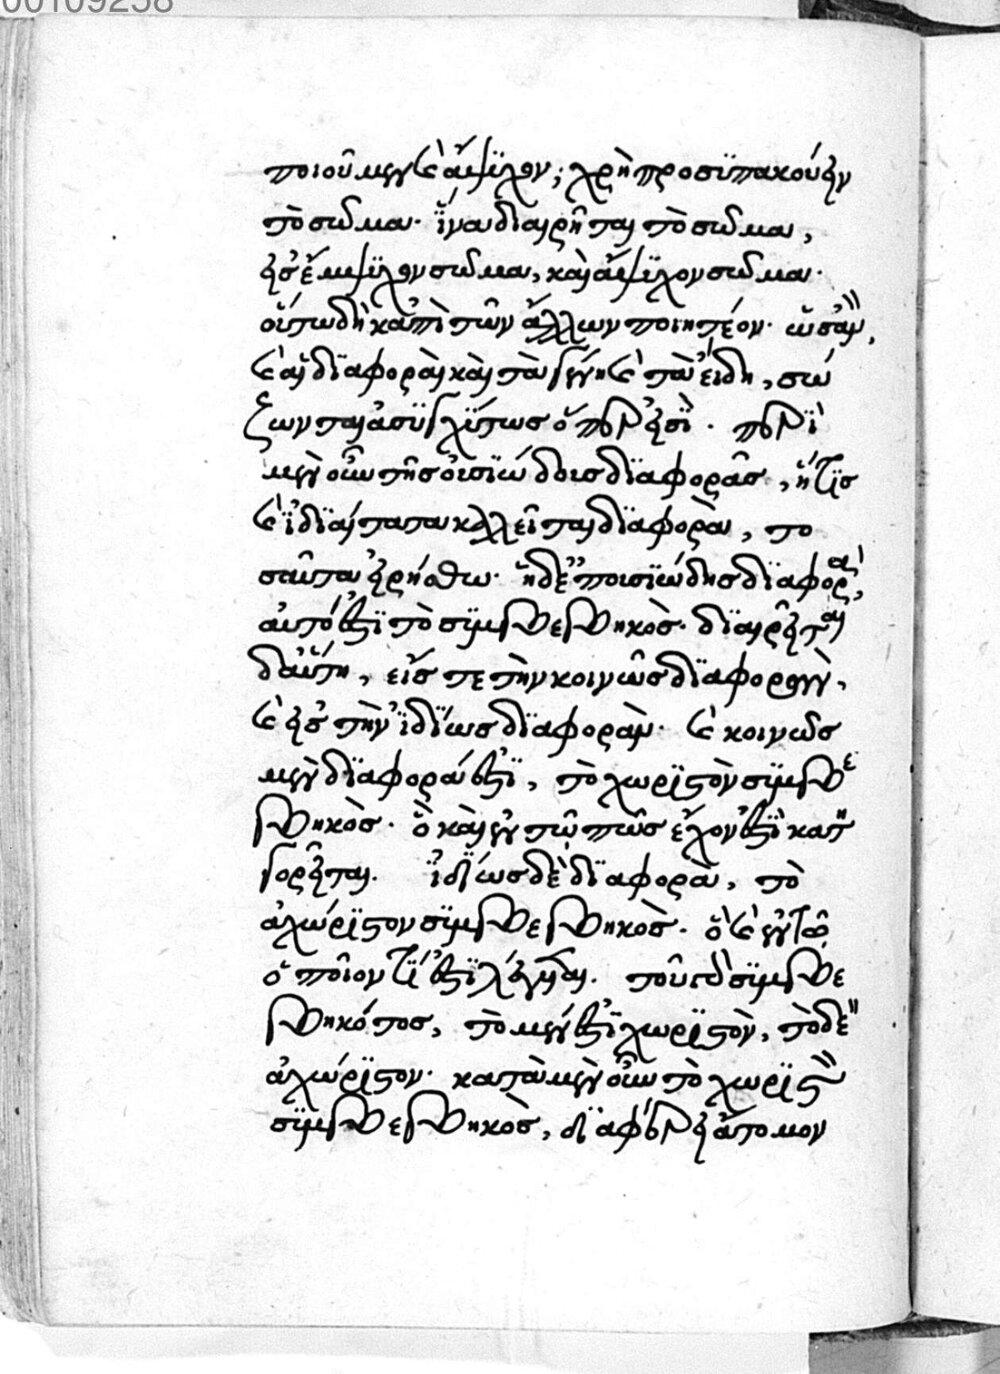 00109258
ποιοῦμεν καὶ ἄψυχον; χρὴ προσϋπακούειν
τὸ σῶμα· ἵνα διαιρῆται τὸ σῶμα,
εἰς ἔμψυχον σῶμα, καὶ ἄψυχον σῶμα·
οὕτω δὴ κἀπὶ τῶν ἄλλων ποιητέον· ὡς ἂν,
καὶ αἱ διαφοραὶ καὶ τὰ γένη καὶ τὰ εἴδη, σώ
ζωνται ἀσυγχύτως ὅπερ εἰσὶ. περὶ
μὲν οὖν τῆς οὐσιώδους διαφορᾶς, ἥτις
καὶ ἰδιαίτατα καλεῖται διαφορὰ, το
σαῦτα εἰρήσθω· ἡ δὲ ἐπουσιώδης διαφορὰ,
αὐτό ἐστι τὸ συμβεβηκὸς· διαιρεῖται
δ' αὕτη, εἴς τε τὴν κοινῶς διαφορὰν,
καὶ εἰς τὴν ἰδίως διαφορὰν· καὶ κοινῶς
μὲν διαφορά ἐστι, τὸ χωριστὸν συμβε
βηκὸς· ὃ καὶ ἐν τῷ πῶς ἔχον ἐστὶ κατη
γορεῖται. ἰδίως δὲ διαφορὰ, τὸ
ἀχώριστον συμβεβηκὸς· ὃ καὶ ἐν τῷ
ὁποῖον τί ἐστι λέγεται. τοῦ δὲ συμβε
βηκότος, τὸ μέν ἐστι χωριστὸν, τὸ δὲ
ἀχώριστον· κατὰ μὲν οὖν τὸ χωριστὸν
συμβεβηκὸς, διαφέρει ἄτομον